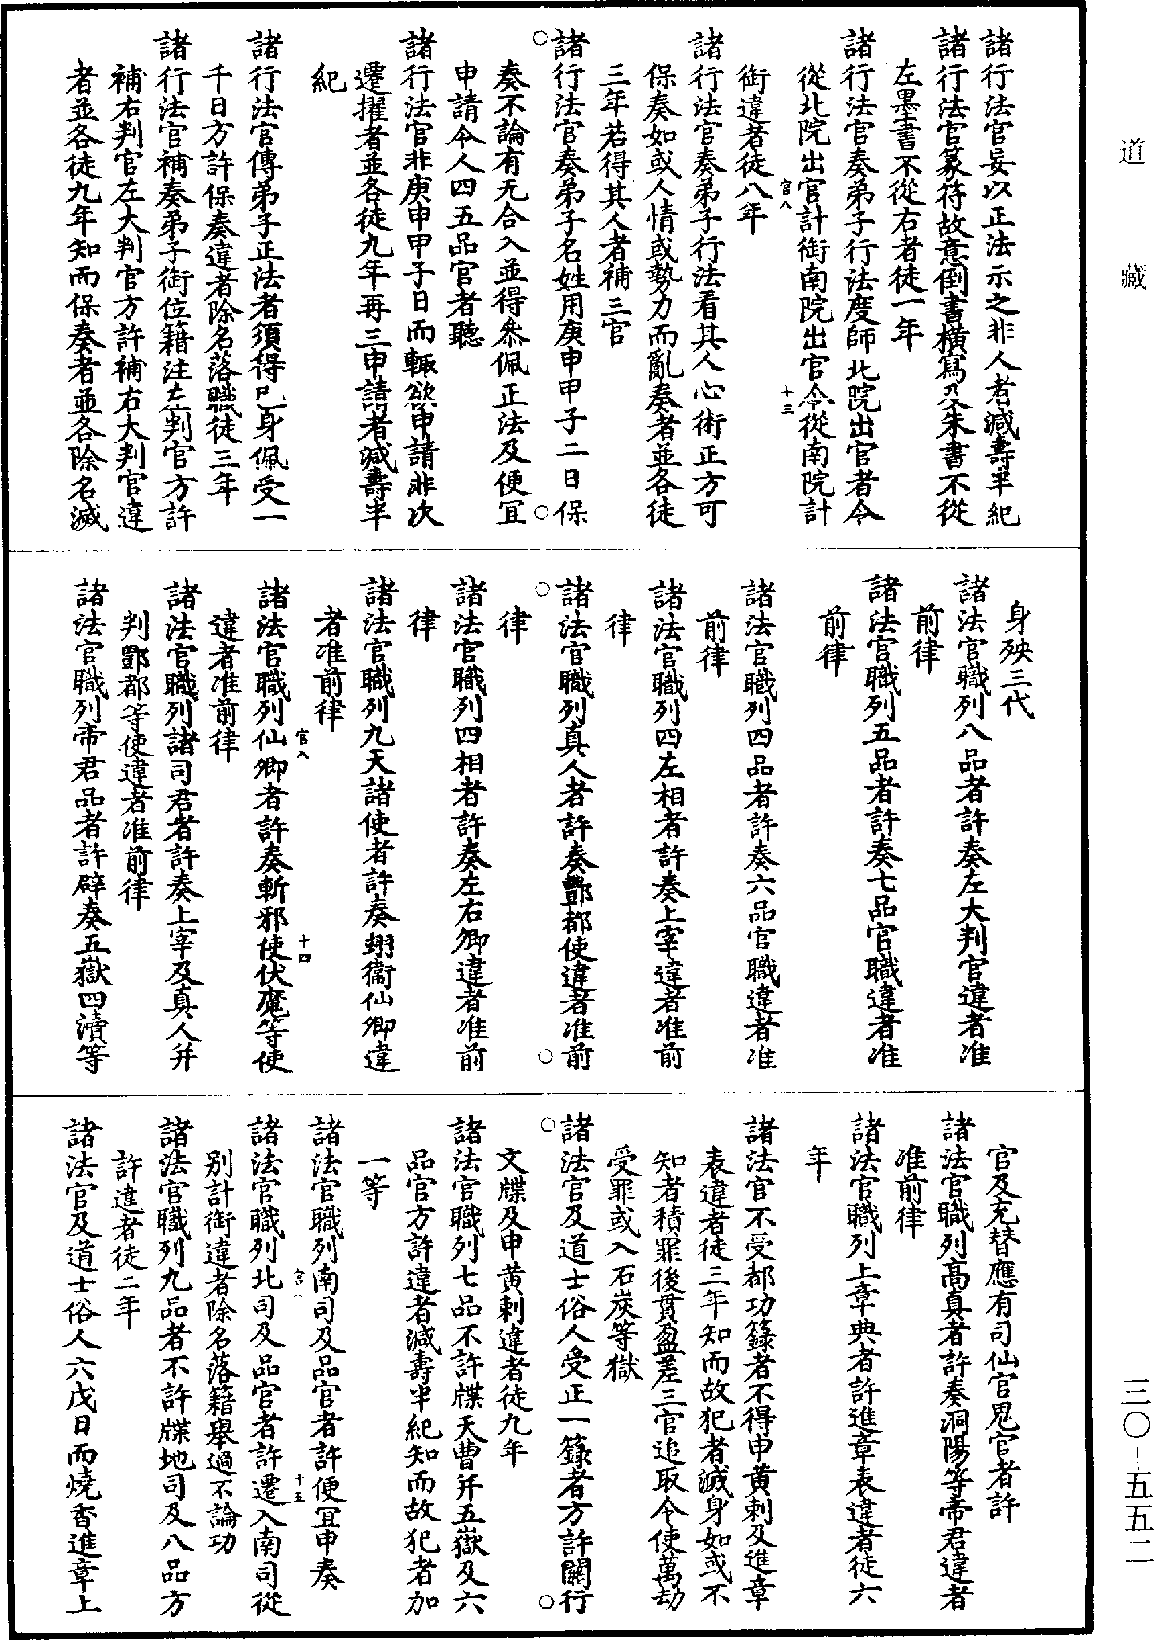 道藏
三〇-五五二
諸行法官妄以正法示之非人者減壽半紀
諸行法官篆符故意倒書橫寫及朱書不從
左墨書不從右者徒一年
諸行法官奏弟子行法度師北院出官者令
從北院出官計銜南院出官令從南院計
銜違者徒八年
官八
十三
諸行法官奏弟子行法看其人心術正方可
保奏如或人情或勢力而亂奏者並各徒
三年若得其人者補三官
諸行法官奏弟子名姓用庚申甲子二日保
奏不論有无合入並得叅佩正法及便冝
申請令人四五品官者聽
諸行法官非庚申甲子日而輒欲申請非次
遷擢者並各徒九年再三申請者減壽半
紀
諸行法官傳弟子正法者須得已身佩受一
千日方許保奏違者除名落職徒三年
諸行法官補奏弟子銜位籍注左判官方許
補右判官左大判官方許補右大判官違
者並各徒九年知而保奏者並各除名滅
身殃三代
諸法官職列八品者許奏左大判官違者准
前律
諸法官職列五品者許奏七品官職違者准
前律
諸法官職列四品者許奏六品官職違者准
前律
諸法官職列四左相者許奏上宰違者准前
律
諸法官職列真人者許奏酆都使違者准前
律
諸法官職列四相者許奏左右卿違者准前
律
諸法官職列九天諸使者許奏翊衞仙卿違
者准前律
諸法官職列仙卿者許奏斬邪使伏魔等使
違者准前律
官八
十四
諸法官職列諸司君者許奏上宰及真人并
判酆都等使違者准前律
諸法官職列帝君品者許辟奏五嶽四瀆等
官及充替應有司仙官鬼官者許
諸法官職列高真者許奏洞陽等帝君違者
准前律
諸法官職列上章典者許進章表違者徒六
年
諸法官不受都功籙者不得申黄刺及進章
表違者徒三年知而故犯者滅身如或不
知者積罪後貫盈差三官追取令使萬劫
受罪或入石炭等獄
諸法官及道士俗人受正一籙者方許關行
文牒及申黄刺違者徒九年
諸法官職列七品不許牒天曹并五嶽及六
品官方許違者減壽半紀知而故犯者加
一等
諸法官職列南司及品官者許便冝申奏
諸法官職列北司及品官者許遷入南司從
别計銜違者除名落籍舉過不論功
十五
諸法官職列九品者不許牒地司及八品方
許違者徒二年
諸法官及道士俗人六戊日而燒香進章上